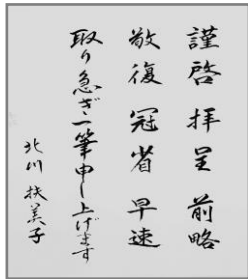 謹啓 拝呈 前略
敬復 冠省 早速
取り急ぎ一筆申し上げます
北川 扶美子